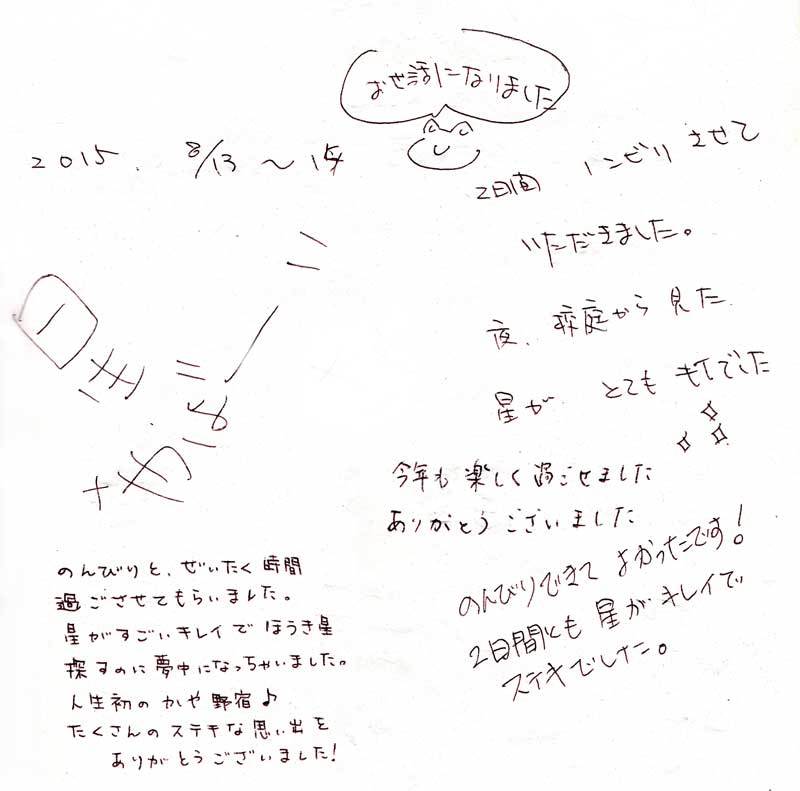 お世話になりました
2015. 8/13 〜 15
2日間 ノンビリ させて
いただきました。
夜、 庭から 見た
星が とても キレイでした
今年も 楽しく 過ごせました
ありがとう ございました
のんびりできて よかったです!
2日間とも 星が キレイで
ステキでした。
のんびりと、ぜいたく 時間
過ごさせてもらいました。
星がすごいキレイで ほうき星
探すのに 夢中になっちゃいました。
人生初の かや 野宿♪
たくさんの ステキな 思い出を
ありがとうございました!